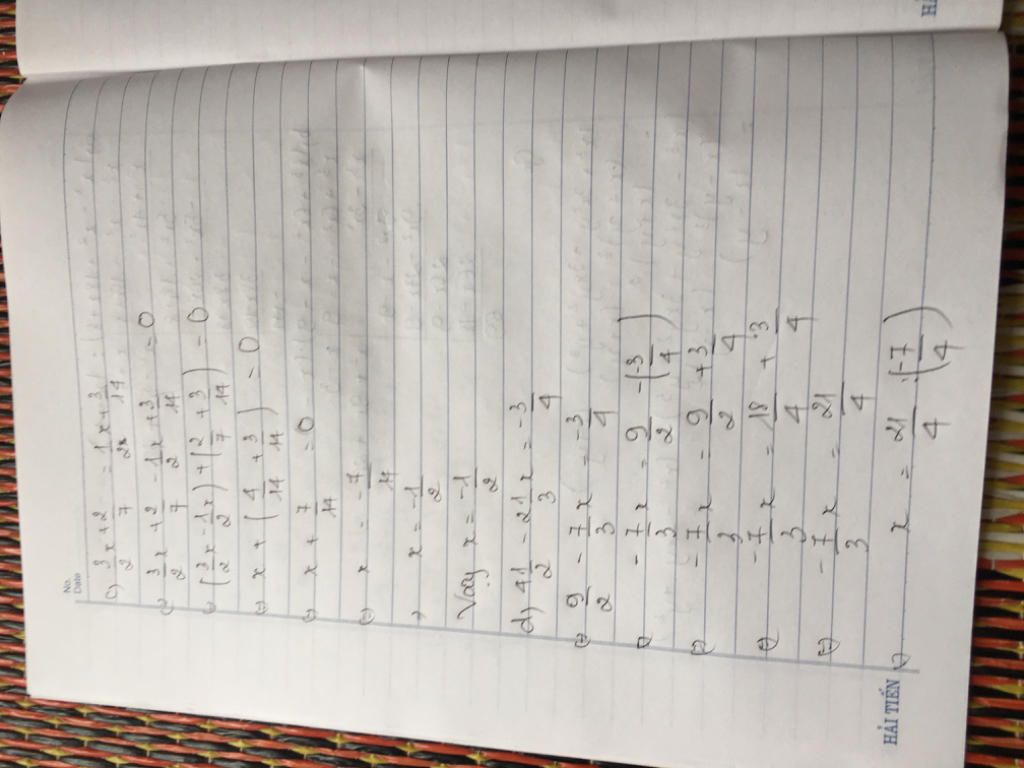 No.
Date
c) 3/2 x + 2/7 = 1/2 x + 3/14
(=) 3/2 x + 2/7 - 1/2 x + 3/14 = 0
(=) (3/2 x - 1/2 x) + (2/7 + 3/14) = 0
(=) x + (4/14 + 3/14) = 0
(=) x + 7/14 = 0
(=) x = -7/14
x = -1/2
Vậy x = -1/2
d) 4 1/2 - 2 1/3 x = -3/4
(=) 9/2 - 7/3 x = -3/4
(=) -7/3 x = 9/2 - (-3/4)
(=) -7/3 x = 9/2 + 3/4
(=) -7/3 x = 18/4 + 3/4
(=) -7/3 x = 21/4
(=) x = 21/4 : (-7/4)
HẢI TIẾN